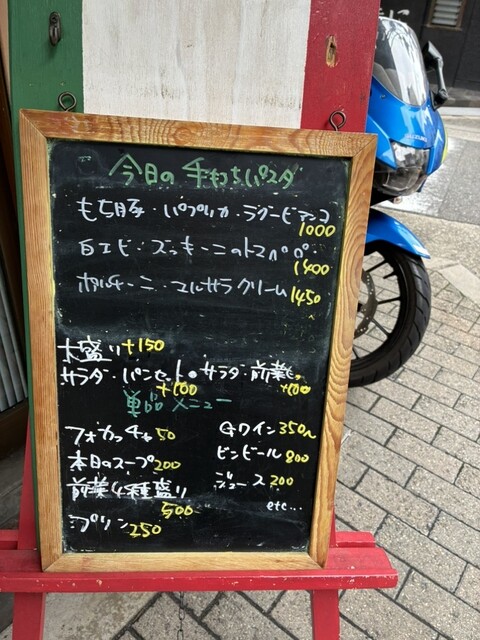 今日の 手打ちパスタ
もち豚・パプリカ・ラグービアンコ
1000
白エビ・ズッキーニのトマトペペ
1400
ポルチーニ・マルサラクリーム 1450
大盛り +150
サラダ・パンセット サラダ・前菜
+100 +400
単品メニュー
フォカッチャ 50
本日のスープ 200
前菜4種盛り
500
プリン 250
Gワイン 350~
ビンビール 800
ジュース 200
etc...
SUZUKI